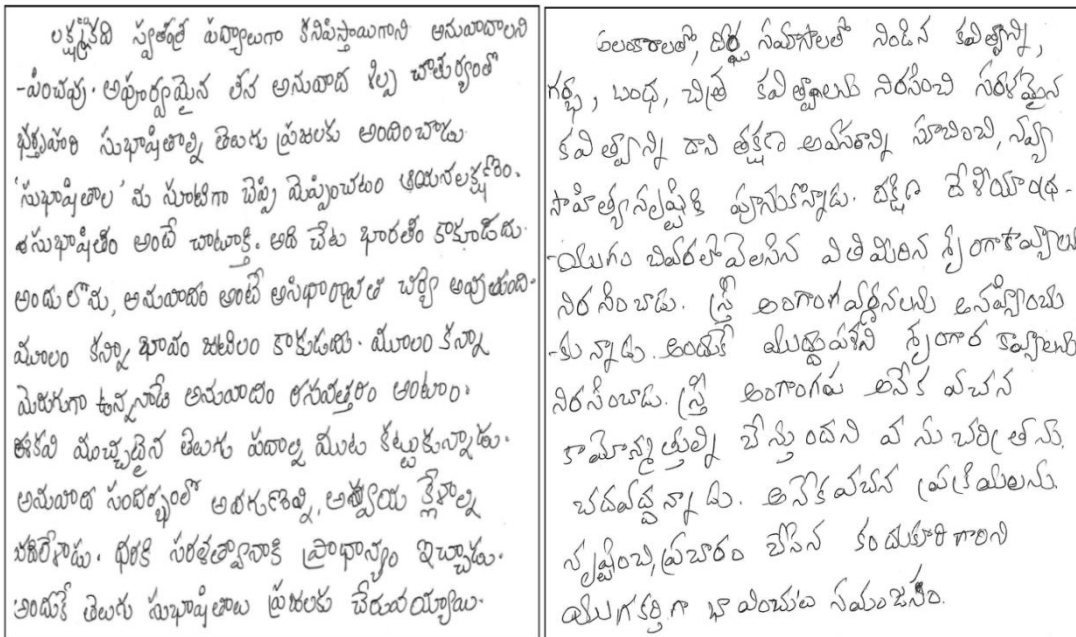 లక్ష్మకవి స్వతంత్ర పద్యాలుగా కనిపిస్తాయిగాని అనువాదాలని
-పించవు. అపూర్వమైన తన అనువాద శిల్ప చాతుర్యంతో
భర్తృహరి సుభాషితాల్ని తెలుగు ప్రజలకు అందించాడు
'సుభాషితాల' ను సూటిగా చెప్పి మెప్పించటం ఆయనలక్షణం.
సుభాషితం అంటే చాటూక్తి. అది చేట భారతం కాకూడదు.
అందులోను, అనువాదం అంటే అసిధారావ్రత చర్యే అవుతుంది.
మూలం కన్నా భావం జటిలం కాకూడదు. మూలం కన్నా
మెరుగుగా ఉన్ననాడే అనువాదం రసవత్తరం అంటాం.
ఈకవి మచ్చుకైన తెలుగు పదాల్ని మూట కట్టుకున్నాడు.
అనువాద సందర్భంలో అవగుణాల్ని, అన్వయ క్లేశాల్ని
వదిలేశాడు. ధారకి సరళత్వానికి ప్రాధాన్యం ఇచ్చాడు.
అందుకే తెలుగు సుభాషితాలు ప్రజలకు చేరువయ్యాయి.
అలంకారాలతో, దీర్ఘ సమాసాలతో నిండిన కవిత్వాన్ని,
గర్భ, బంధ, చిత్ర కవిత్వాలను నిరసించి సరళమైన
కవిత్వాన్ని దాని తక్షణ అవసరాన్ని సూచించి, నవ్య
సాహిత్యసృష్టికి పూనుకొన్నాడు. దక్షిణ దేశీయాంధ్ర-
-యుగం చివరలో వెలసిన మితిమీరిన శృంగారకావ్యాలు
నిరసించాడు. స్త్రీ అంగాంగవర్ణనలను అసహ్యించు
-కున్నాడు. అందుకే ముద్దుపళని శృంగార కావ్యాలను
నిరసించాడు. స్త్రీ అంగాంగ అనేక వచన
కామోన్మత్తుల్ని చేస్తుందని వసుచరిత్రను
చదవద్దన్నాడు. అనేకవచన ప్రక్రియలను
సృష్టించి, ప్రచారం చేసిన కందుకూరి గారిని
యుగకర్తగా భావించుట సమంజసం.